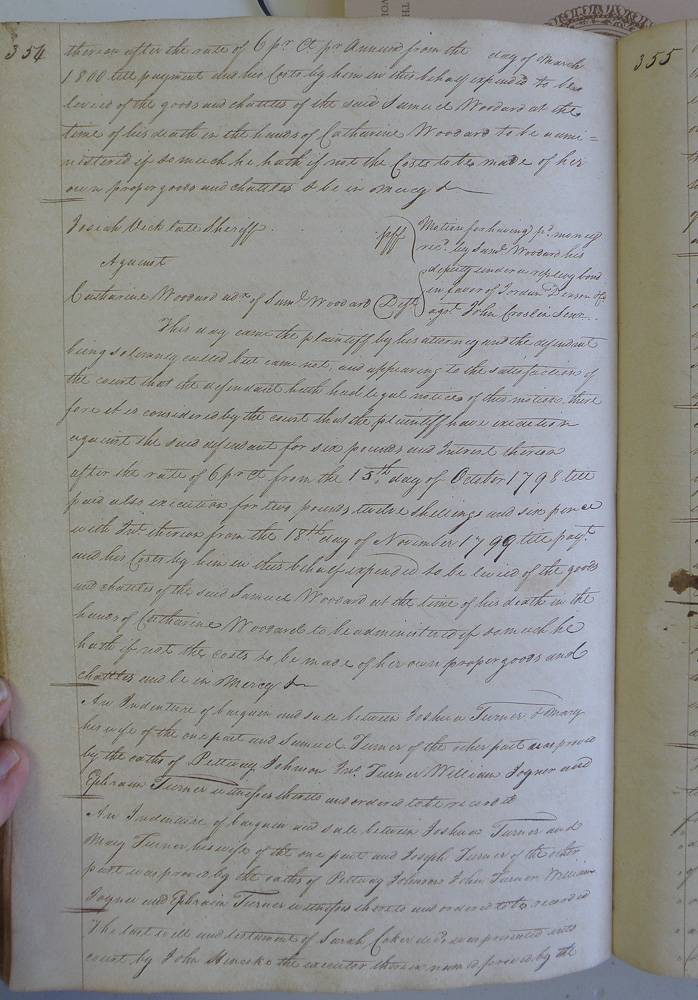 354
thereon after the rate of 6 pr Ct pr Annum from the day of March
1800 till payment and his Costs by him in this behalf expended to be
levied of the goods and chattles of the said Samuel Woodard at the
time of his death in the hands of Catharine Woodard to be admi=
nistered if so much he hath if not the Costs to be made of her
own proper goods and chattles & be in mercy &
Josiah Vick late Sheriff plff
Against
Catharine Woodard adx of Saml Woodard Deft
Motion for having pd money
recd by Saml Woodard his
deputy under a replevy bond
in favor of Jordan Denson &Co
agst John Crosbie Senr
This day came the plaintiff by his attorney and the defendant
being solemnly called but came not, and appearing to the satisfaction of
the court that the defendant hath had legal notice of this motion, there
fore it is considered by the court that the plaintiff have execution
against the said defendant for six pounds and Interest thereon
after the rate of 6 pr ct from the 15th day of October 1798 till
paid also execution for two pounds twelve shillings and six pence
with Int thereon from the 18th day of November 1799 till payt
and his Costs by him in this behalf expended to be levied of the goods
and chattles of the said Samuel Woodard at the time of his death in the
hands of Catharine Woodard to be administered if so much he
hath if not the costs to be made of her own proper goods and
chattles and be in Mercy &
An Indenture of bargain and sale between Joshua Turner & Mary
his wife of the one part and Samuel Turner of the other part was proved
by the oaths of Pettway Johnson Jno. Turner William Joyner and
Ephraim Turner witnesses thereto and ordered to be recorded
An Indenture of bargain and sale between Joshua Turner and
Mary Turner his wife of the one part and Joseph Turner of the other
part was proved by the oaths of Pettway Johnson John Turner William
Joyner and Ephraim Turner witnesses thereto and ordered to be recorded
The last will and testament of Sarah Coker decd was presented into
court by John the executor therein named proved by the
355